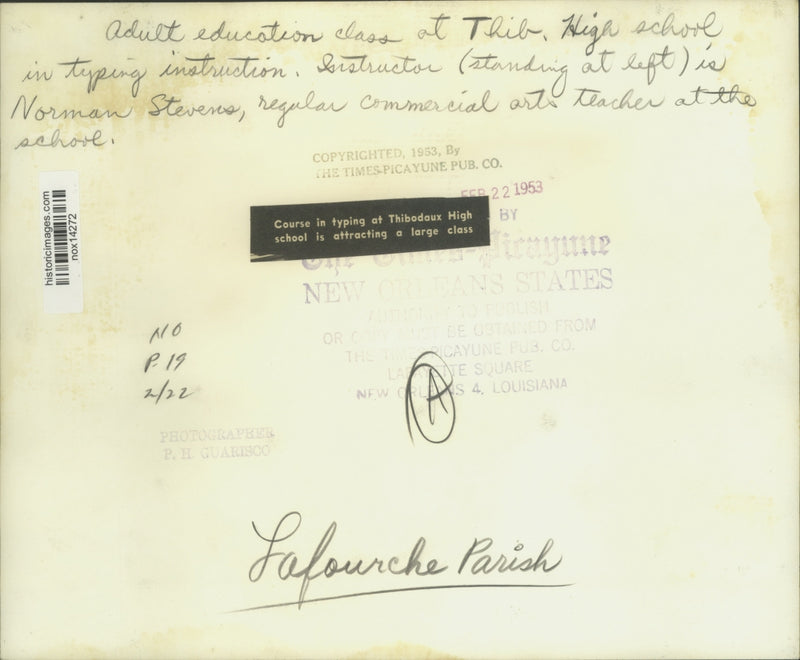 Adult education class at Thib. High school
in typing instruction. Instructor (standing at left) is
Norman Stevens, regular commercial arts teacher at the
school.
COPYRIGHTED, 1953, By
THE TIMES-PICAYUNE PUB. CO.
FEB 22 1953
BY
Course in typing at Thibodaux High
school is attracting a large class
The Times-Picayune
NEW ORLEANS STATES
AUTHORITY TO PUBLISH
OR COPY MUST BE OBTAINED FROM
THE TIMES-PICAYUNE PUB. CO.
LAFAYETTE SQUARE
NEW ORLEANS 4, LOUISIANA
historicimages.com
nox14272
NO
P. 19
2/22
A
PHOTOGRAPHER
P. H. GUARISCO
Lafourche Parish